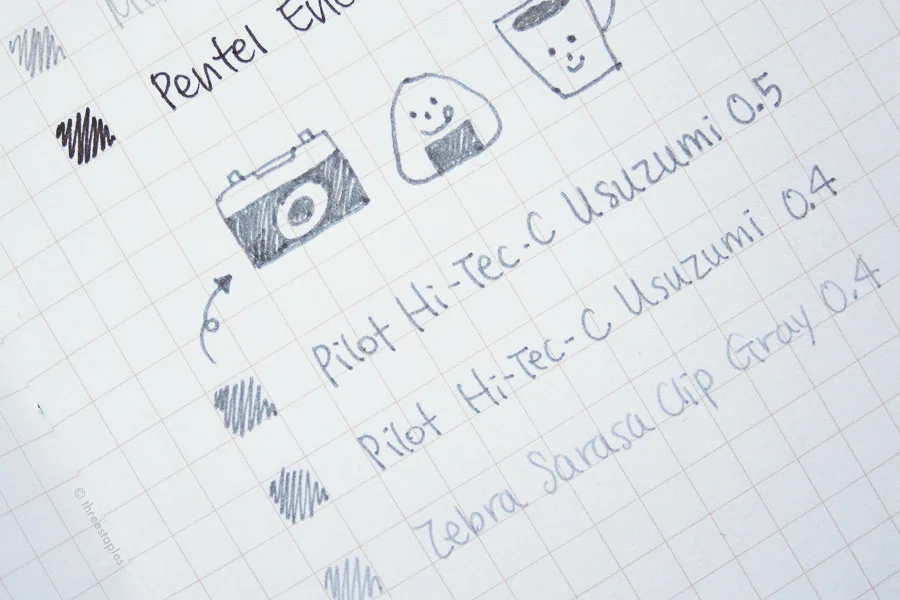 Pentel
Pilot Hi-Tec-C Usuzumi 0.5
Pilot Hi-Tec-C Usuzumi 0.4
Zebra Sarasa Clip Gray 0.4
© threestaples